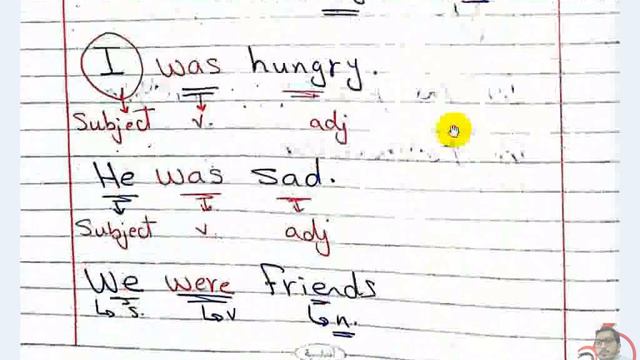 I was hungry.
Subject v. adj
He was sad.
Subject v. adj
We were friends
s. v n.